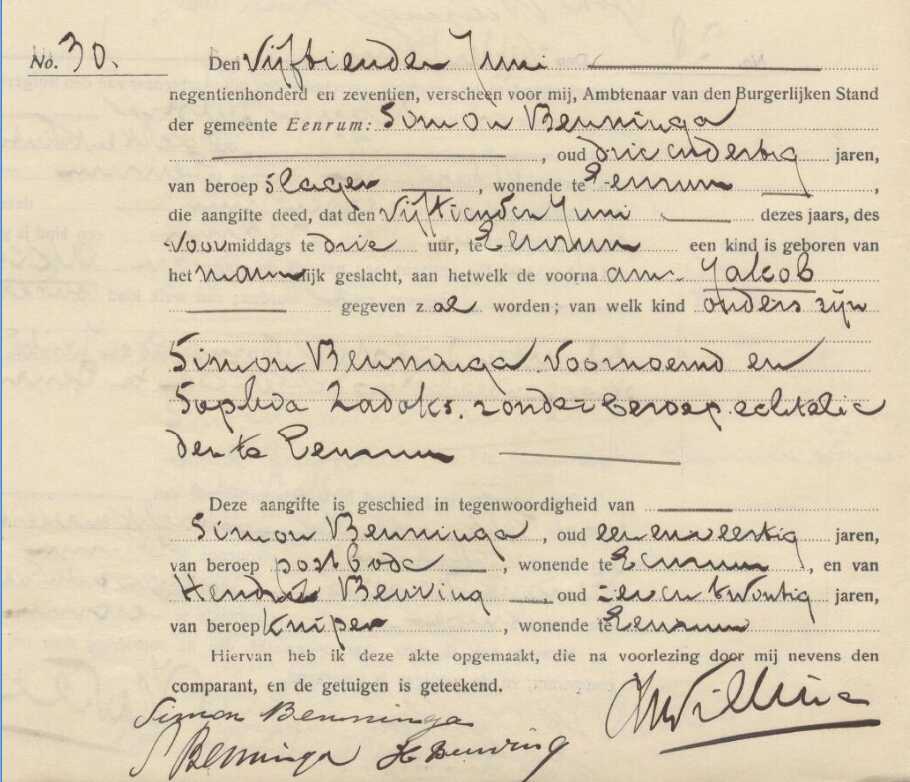 No. 30. Den Vijftienden Juni
negentienhonderd en zeventien, verscheen voor mij, Ambtenaar van den Burgerlijken Stand
der gemeente Eenrum: Simon Benninga
, oud drie en dertig jaren,
van beroep slager , wonende te Eenrum ,
die aangifte deed, dat den vijftienden Juni dezes jaars, des
voormiddags te drie uur, te Eenrum een kind is geboren van
het mannelijk geslacht, aan hetwelk de voorna am Jakob
gegeven z al worden; van welk kind ouders zijn
Simon Benninga voornoemd en
Sophia Zadoks. zonder beroep. echtelie
den te Eenrum
Deze aangifte is geschied in tegenwoordigheid van
Simon Benninga , oud eenenveertig jaren,
van beroep postbode , wonende te Eenrum , en van
Hendrik Beuving , oud zevenentwintig jaren,
van beroep kuiper , wonende te Eenrum
Hiervan heb ik deze akte opgemaakt, die na voorlezing door mij nevens den
comparant, en de getuigen is geteekend.
Simon Benninga
S Benninga H Beuving